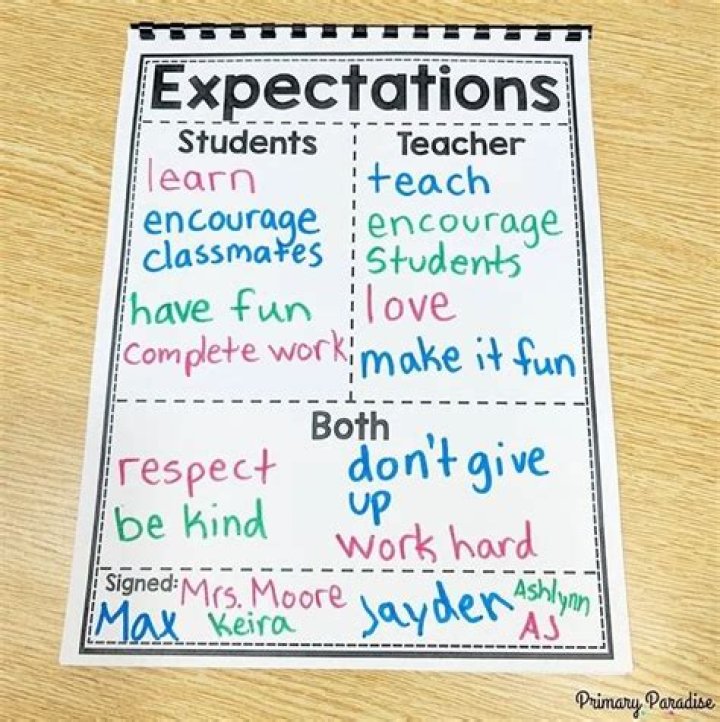 Expectations
Students
learn
encourage
classmates
have fun
complete work
Teacher
teach
encourage
Students
love
make it fun
Both
respect
be kind
don't give
up
work hard
Signed: Mrs. Moore
Max Keira Jayden Ashlynn
AJ
Primary Paradise